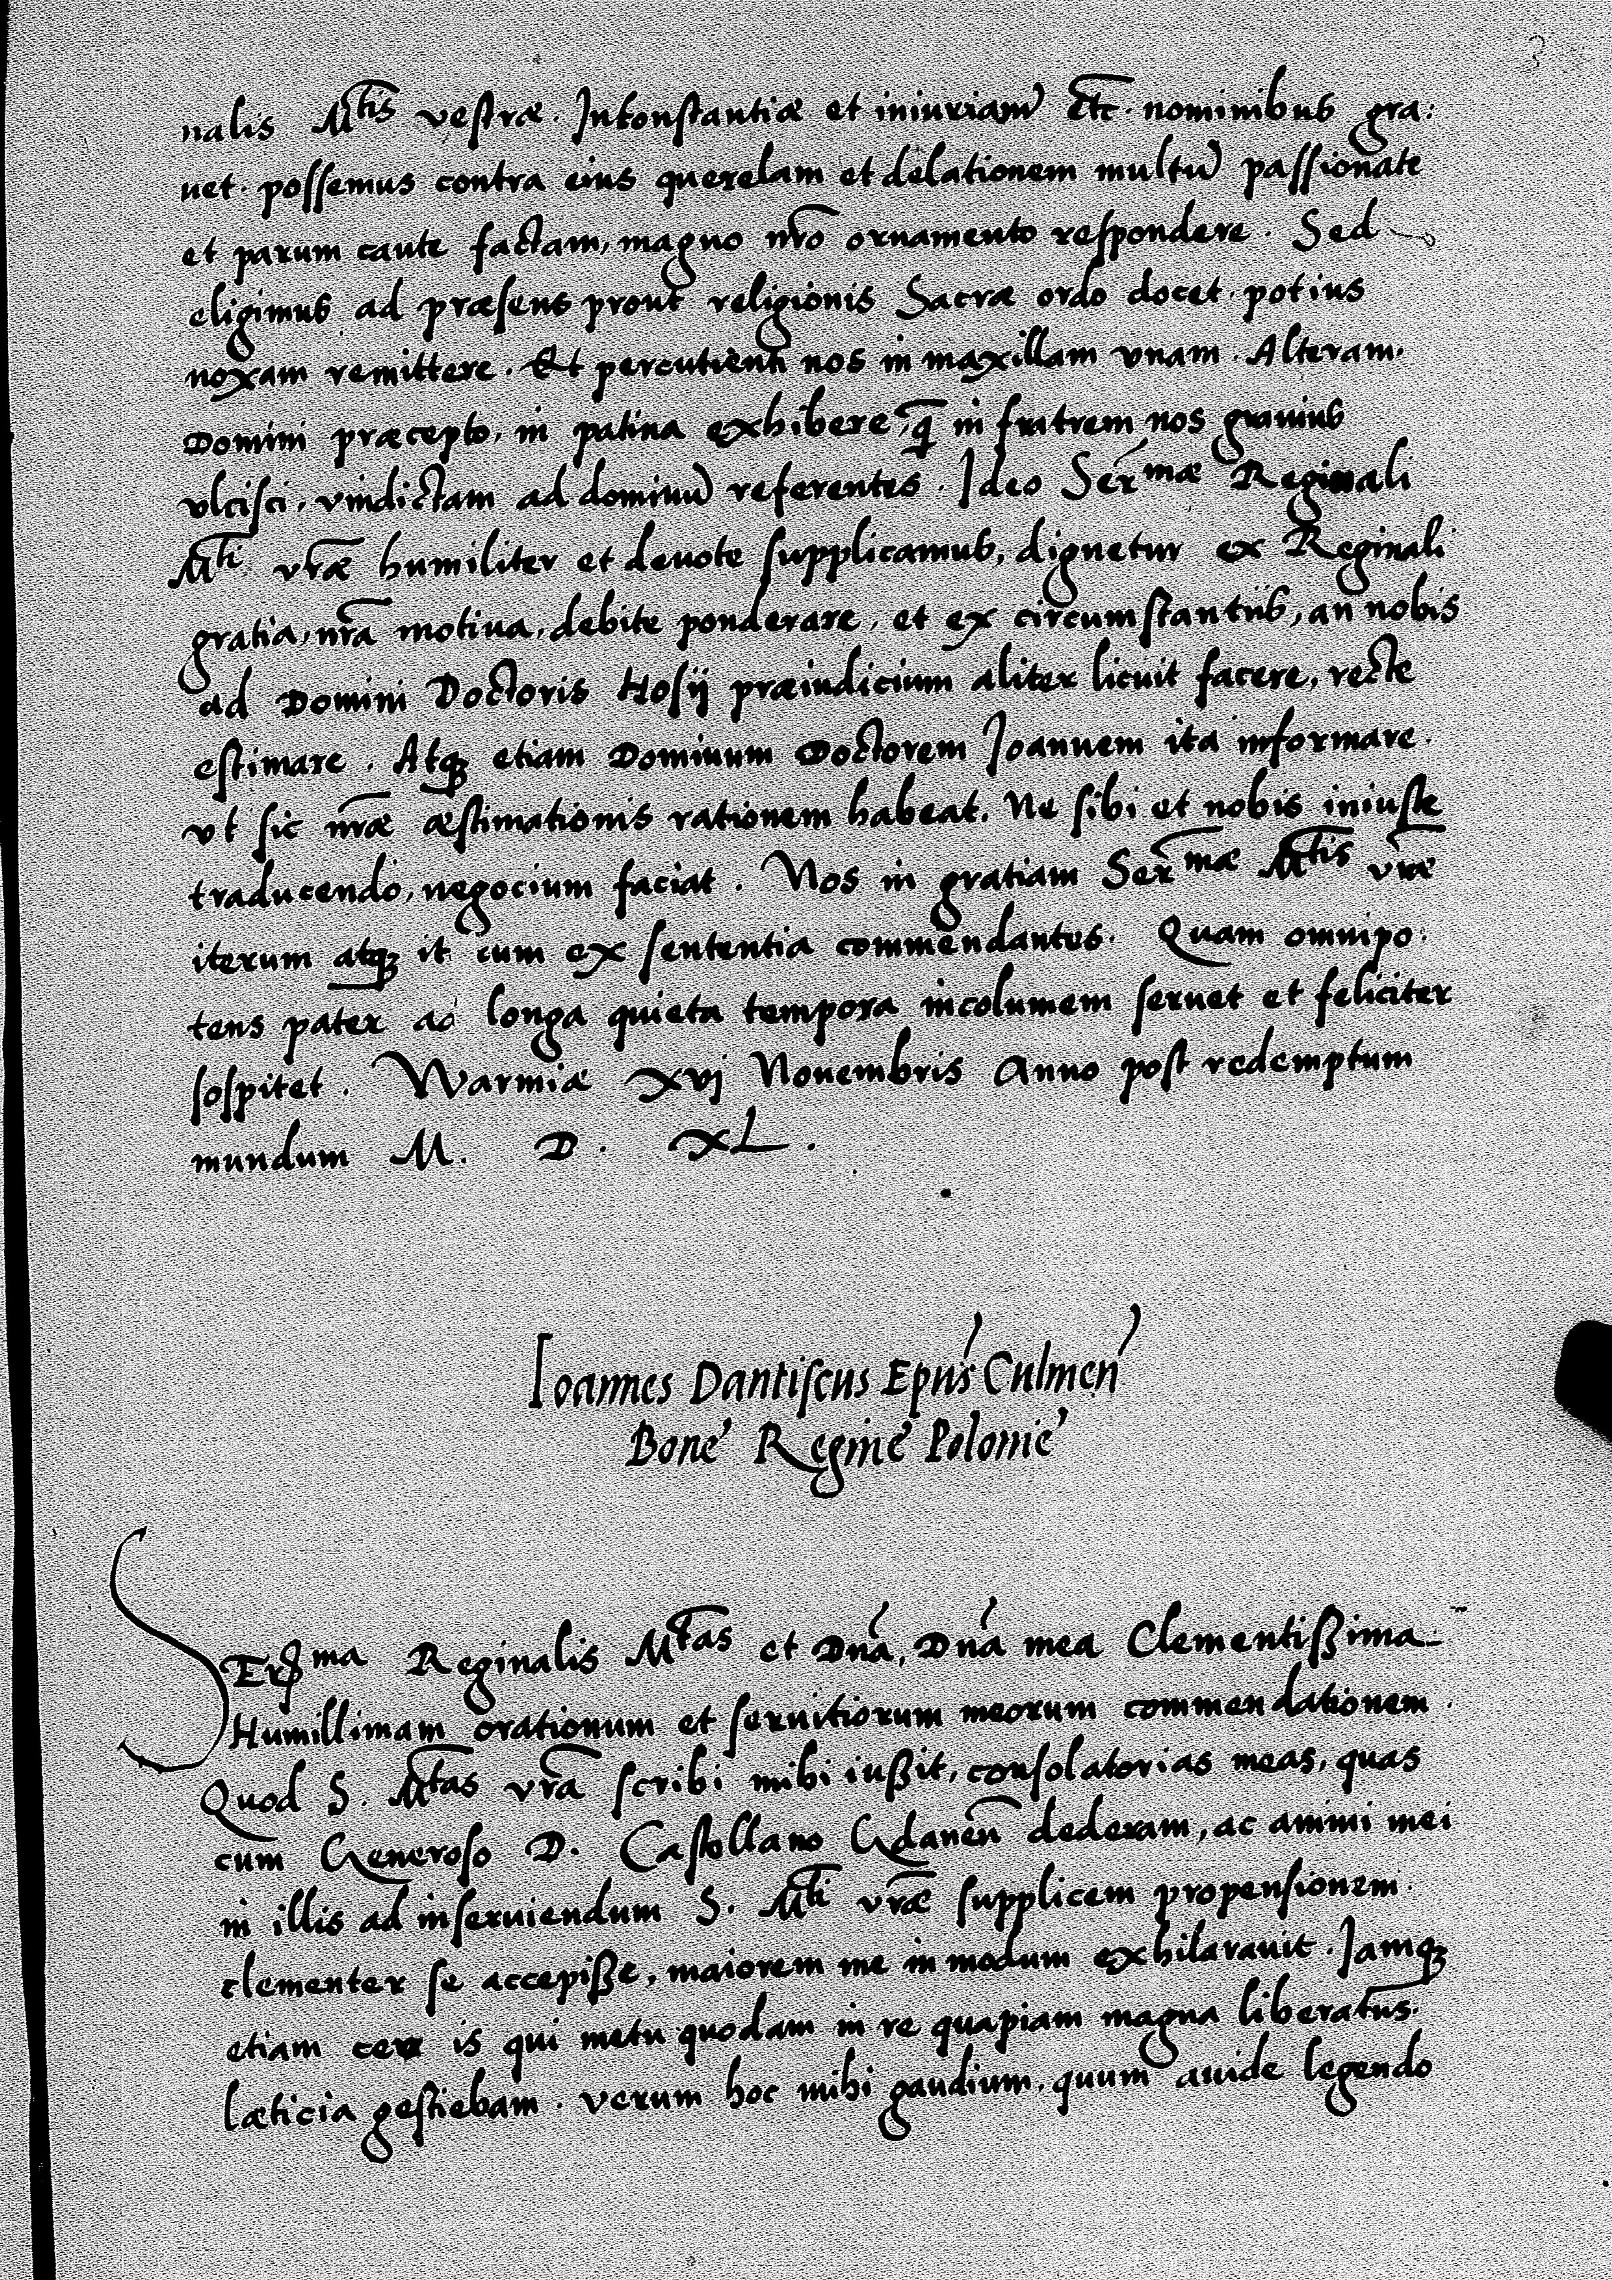 nalis M^tis vestræ. Inconstantiæ et iniuriam Etc. nominibus gra:
uet. possemus contra eius querelam et delationem multu passionate
et parum caute factam, magno nro ornamento respondere. Sed
eligimus ad præsens prout religionis Sacræ ordo docet. potius
noxam remittere. Et percutienti nos in maxillam vnam. Alteram.
Domini præcepto, in patina exhibere, q in fratrem nos grauius
vlcisci, vindictam ad dominu referentes. Ideo Ser^mæ Reginali
M^ti vræ humiliter et deuote supplicamus, dignetur ex Reginali
gratia, nra motiua, debite ponderare, et ex circumstantijs, an nobis
ad Domini Doctoris Hosij præiudicium aliter licuit facere, recte
estimare. Atq3 etiam Dominum Doctorem Joannem ita informare.
vt sic nræ æstimationis rationem habeat. Ne sibi et nobis iniuste
traducendo, negocium faciat. Nos in gratiam Ser^mæ M^tis vræ
iterum atq3 it cum ex sententia commendantes. Quam omnipo:
tens pater ad longa quieta tempora incolumem seruet et feliciter
sospitet. Warmiæ xvj Nouembris Anno post redemptum
mundum M. D. XL.
Ioannes Dantiscus Epus Culmen
Bone Regine Polonie
SEr^ma Reginalis M^tas et Dna, Dna mea Clementißima.
Humillimam orationum et seruitiorum meorum commendationem.
Quod S. M^tas vra scribi mihi iußit, consolatorias meas, quas
cum Generoso D. Castellano Gdanen dederam, ac animi mei
in illis ad inseruiendum S. M^ti vræ supplicem propensionem.
clementer se accepiße, maiorem me in modum exhilarauit. Jamq3
etiam ceu is qui metu quodam in re quapiam magna liberatus.
læticia gestiebam. verum hoc mihi gaudium, quum auide legendo